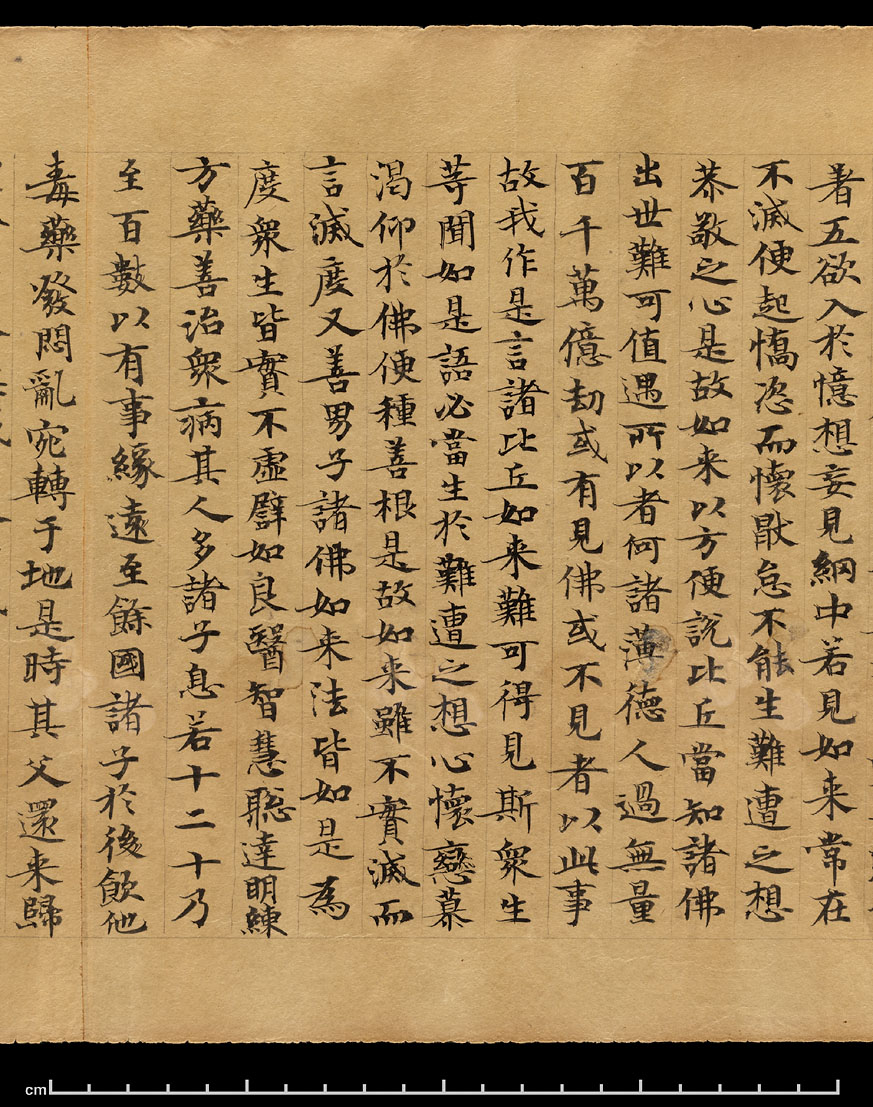 著五欲入於憶想妄見網中若見如来常在
不滅便起憍恣而懷猒怠不能生難遭之想
恭敬之心是故如来以方便說比丘當知諸佛
出世難可值遇所以者何諸薄德人過無量
百千萬億劫或有見佛或不見者以此事
故我作是言諸比丘如来難可得見斯衆生
等聞如是語必當生於難遭之想心懷戀慕
渴仰於佛便種善根是故如来雖不實滅而
言滅度又善男子諸佛如来法皆如是為
度衆生皆實不虛譬如良醫智慧聦達明練
方藥善治衆病其人多諸子息若十二十乃
至百數以有事緣遠至餘國諸子於後飲他
毒藥發悶亂宛轉于地是時其父還来歸